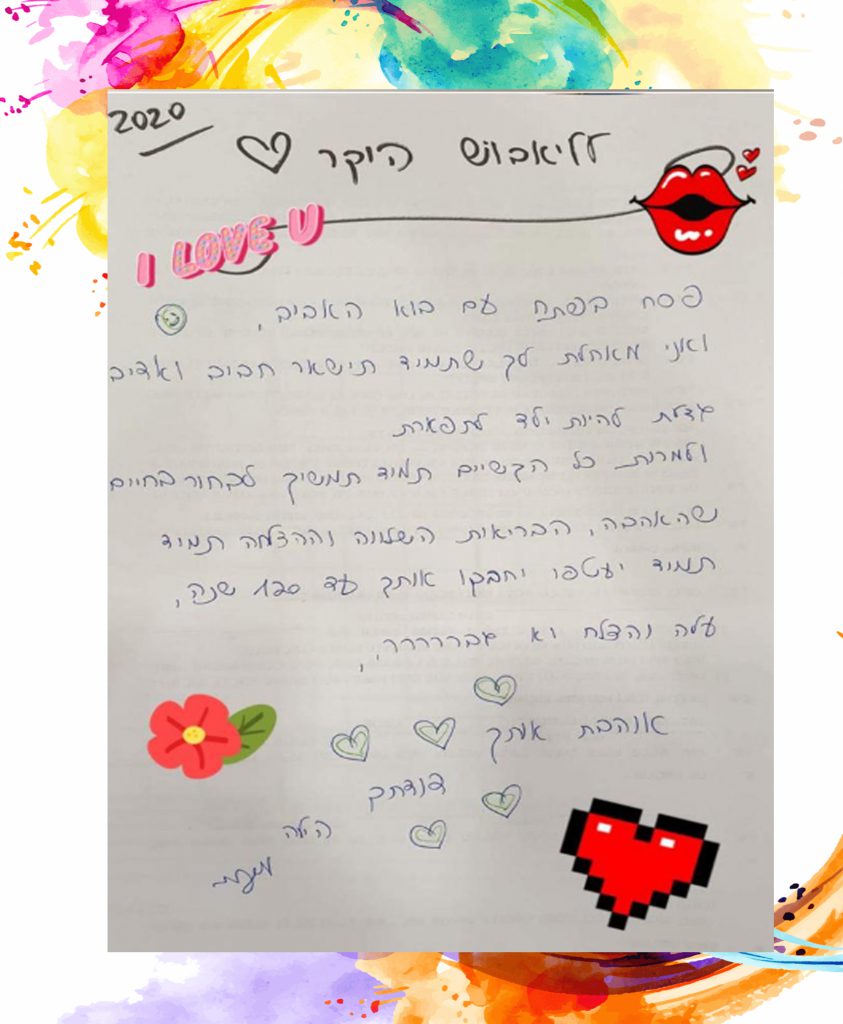 2020
לליאבוש היקר
I LOVE U
פסח בפתח עם בוא האביב,
ואני מאחלת לך שתמיד תישאר חביב ואדיב
גדלת להיות ילד לתפארת
ולמרות כל הקשיים תמיד תמשיך לבחור בחיים
שהאהבה, הבריאות השלווה וההצלחה תמיד
תמיד יעטפו יחבקו אותך עד 120 שנה,
עלה והצלח וא גברררררר,
אוהבת אותך
דודתך
הילה